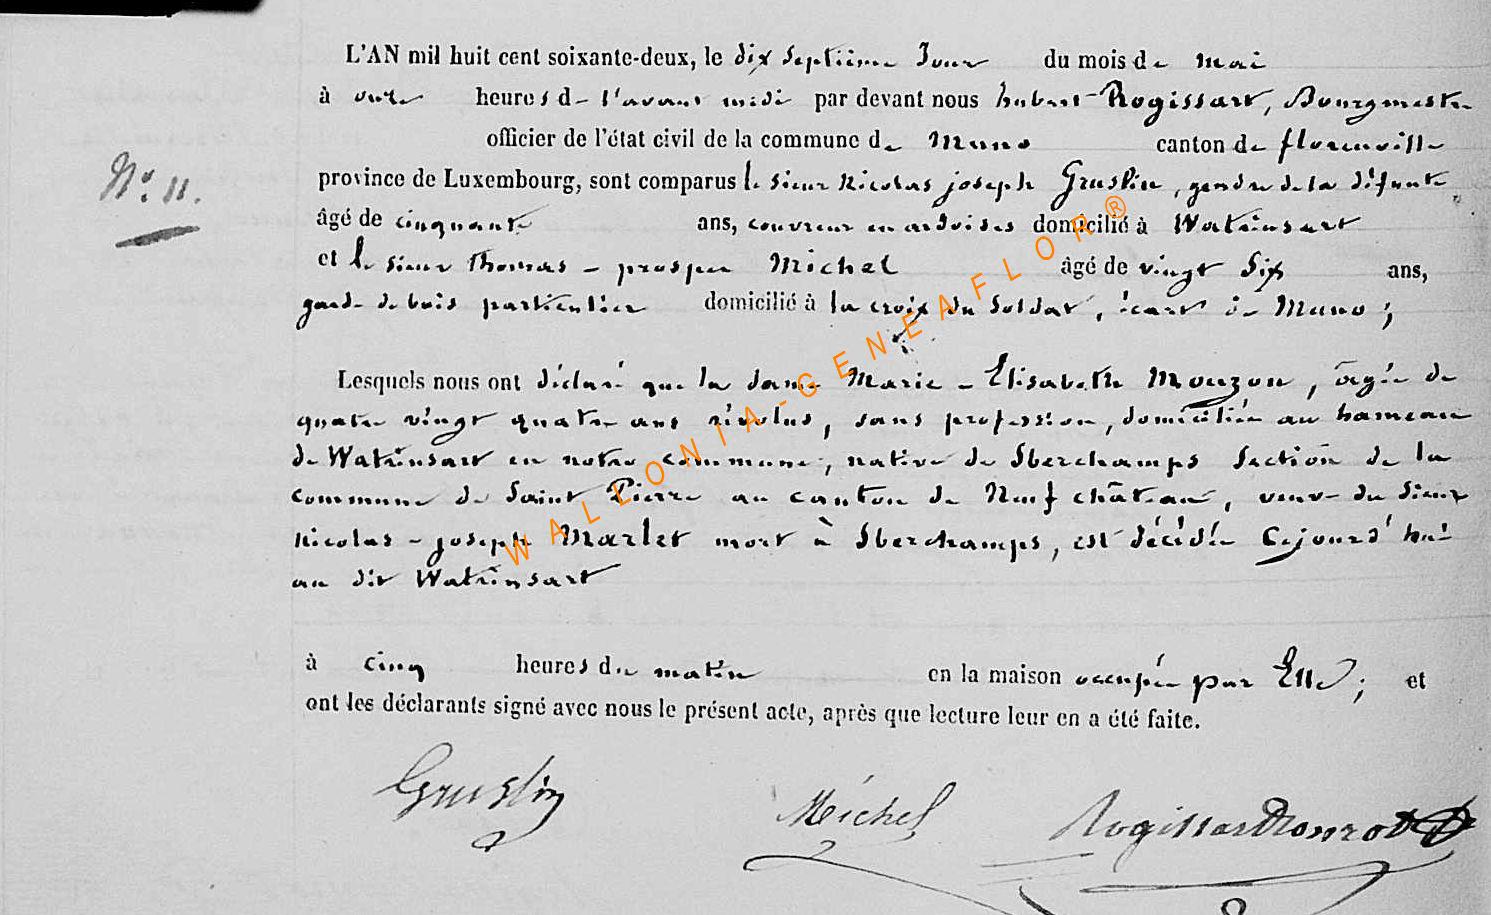 L'AN mil huit cent soixante-deux, le dix septième Jour du mois de mai
à onze heures de l'avant midi par devant nous hubert Rogissart, Bourgmestre
officier de l'état civil de la commune de Muno canton de florenville
N° 11.
province de Luxembourg, sont comparus le sieur Nicolas joseph Gruslin, gendre de la défunte
âgé de cinquante ans, couvreur en ardoises domicilié à Watrinsart
et le sieur Thomas - prosper Michel âgé de vingt six ans,
garde de bois particulier domicilié à la croix du Soldat, écart de Muno ;
Lesquels nous ont déclaré que la dame Marie - Élisabeth Mouzon, âgée de
quatre vingt quatre ans révolus, sans profession, domiciliée au hameau
de Watrinsart en notre commune, native de Sberchamps Section de la
commune de Saint Pierre au canton de Neufchâteau, veuve du Sieur
Nicolas - joseph Marlet mort à Sberchamps, est décédée Cejourd'hui
au dit Watrinsart
à cinq heures du matin en la maison occupée par Elle ; et
ont les déclarants signé avec nous le présent acte, après que lecture leur en a été faite.
Gruslin Michel
WALLONIA-GENEAFLOR®